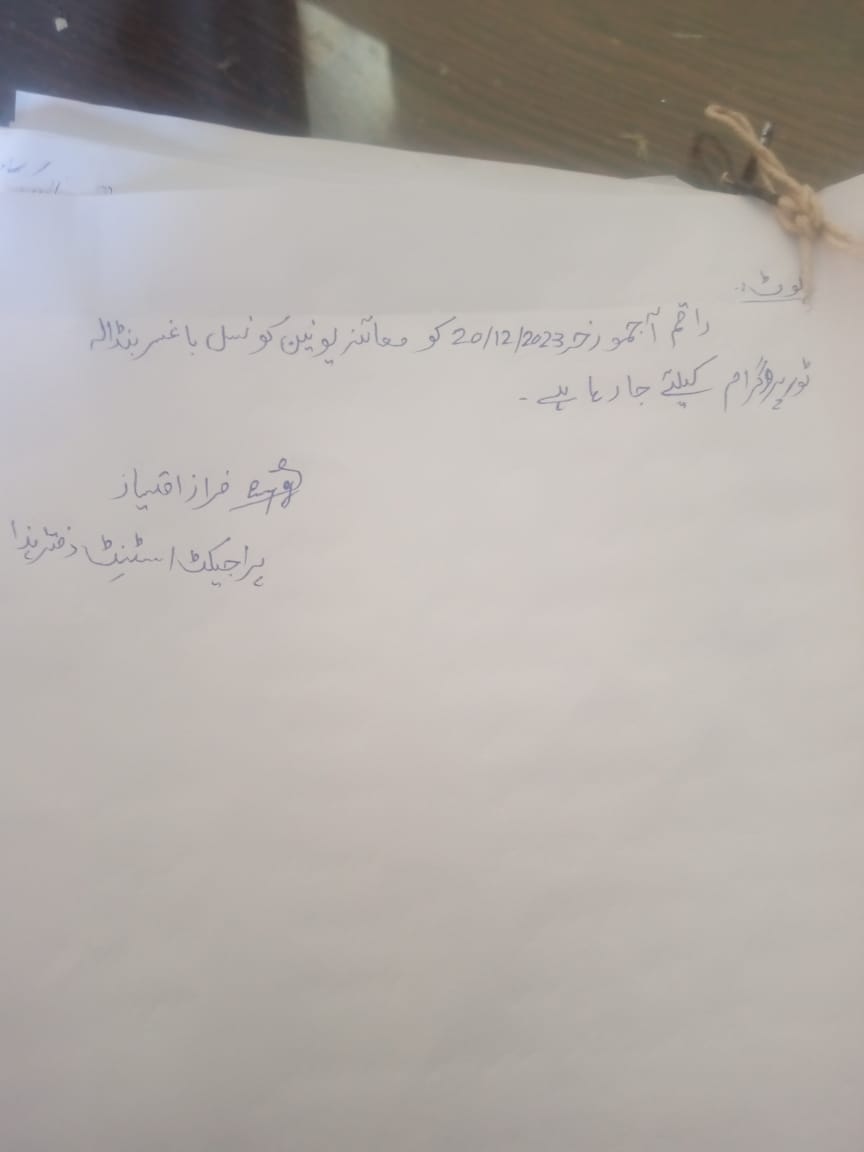 نوٹ:
راقم آجمورخہ 20/12/2023 کو معائنہ یونین کونسل باغسر بنڈالہ
ٹور پروگرام کیلئے جا رہا ہے۔
فراز امتیاز
پراجیکٹ اسسٹنٹ دفتر ہذا